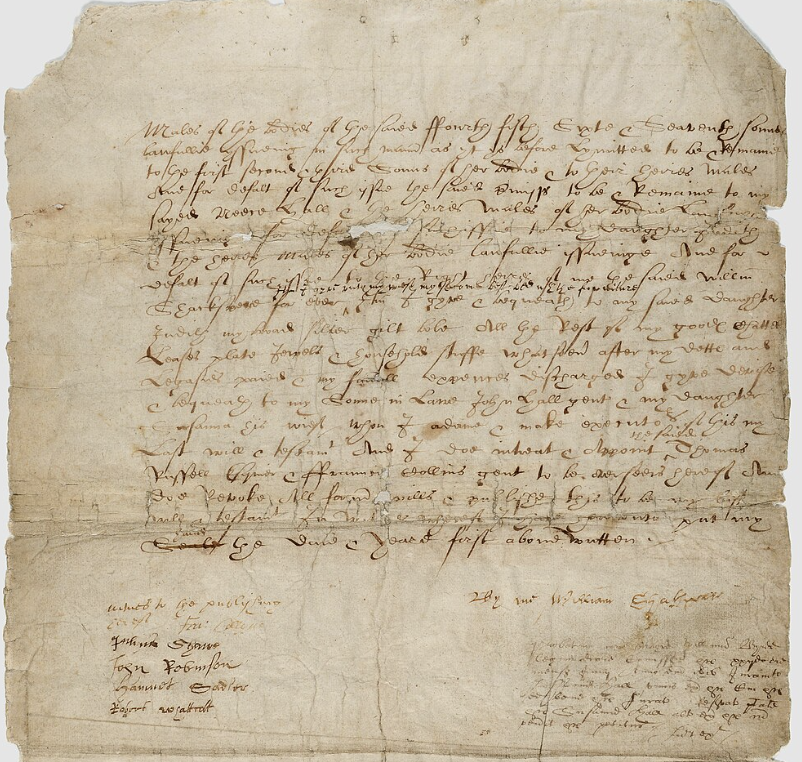 Males of the bodies of the saied ffourth fifth Sixte & Seaventh sonnes
lawfullie yssueing in such manner as yt ys before Lymitted to be & Remaine
to the first second & third Sonns of her bodie & to their heires Males
And for defalt of such issue the saied premisses to be & Remaine to my
sayed Neece Hall & the heires Males of her bodie
for defalt of issue to my daughter Judith
& the heires Males of her bodie lawfullie issueinge And for
defalt of such issue to the Right heires of me the saied willm
Itm I gyve unto my wief my second best bed with the furniture
Shackspere for ever Itm I gyve & bequeath to my saied daughter
Judith my broad silver gilt bole All the Rest of my goodes Chattels
Leases plate Jewels & household stuffe whatsoever after my dettes and
Legasies paied & my funerall expences discharged I gyve devise
& bequeath to my Sonne in Lawe John Hall gent & my daughter
Susanna his wief whom I ordaine & make executors of this my
Last will & testamt And I doe intreat & Appoint the saied Thomas
Russell Esquier & ffrauncis Collins gent to be overseers hereof And
doe Revoke All former wills & publishe this to be my last
will & testamt In witnes whereof I have hereunto put my
hand
Seale the daie & Yeare first above written
By me William Shakspeare
witnes to the publishing
hereof Fra: Collyns
Julius Shawe
John Robinson
Hamnet Sadler
Robert whattcott